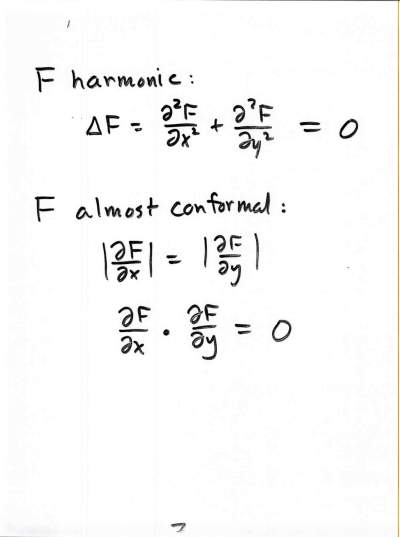 F harmonic:
ΔF = ∂²F/∂x² + ∂²F/∂y² = 0
F almost conformal:
|∂F/∂x| = |∂F/∂y|
∂F/∂x · ∂F/∂y = 0